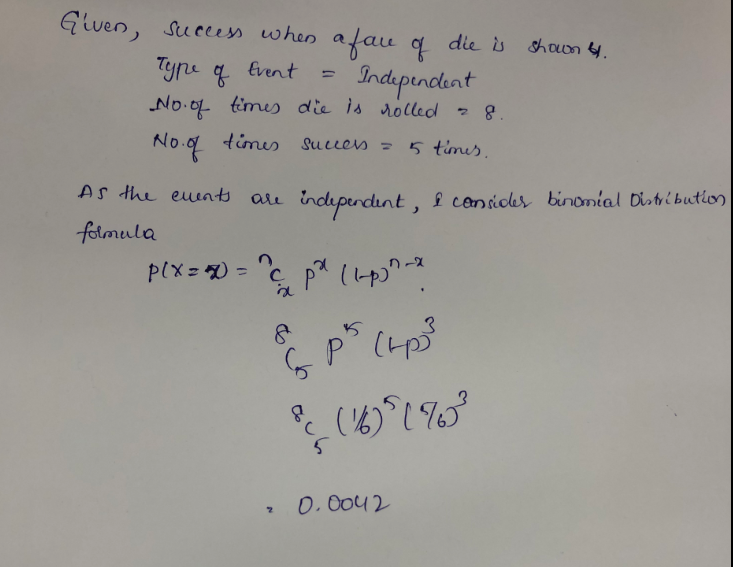 Given, Success when a face of die is shown 4.
Type of Event = Independent
No.of times die is rolled = 8.
No.of times success = 5 times.
As the events are independent, I consider binomial Distribution
formula
P(X = x) = ⁿCₓ pˣ (1-p)ⁿ⁻ˣ.
⁸C₅ p⁵ (1-p)³
⁸C₅ (1/6)⁵ (5/6)³
= 0.0042